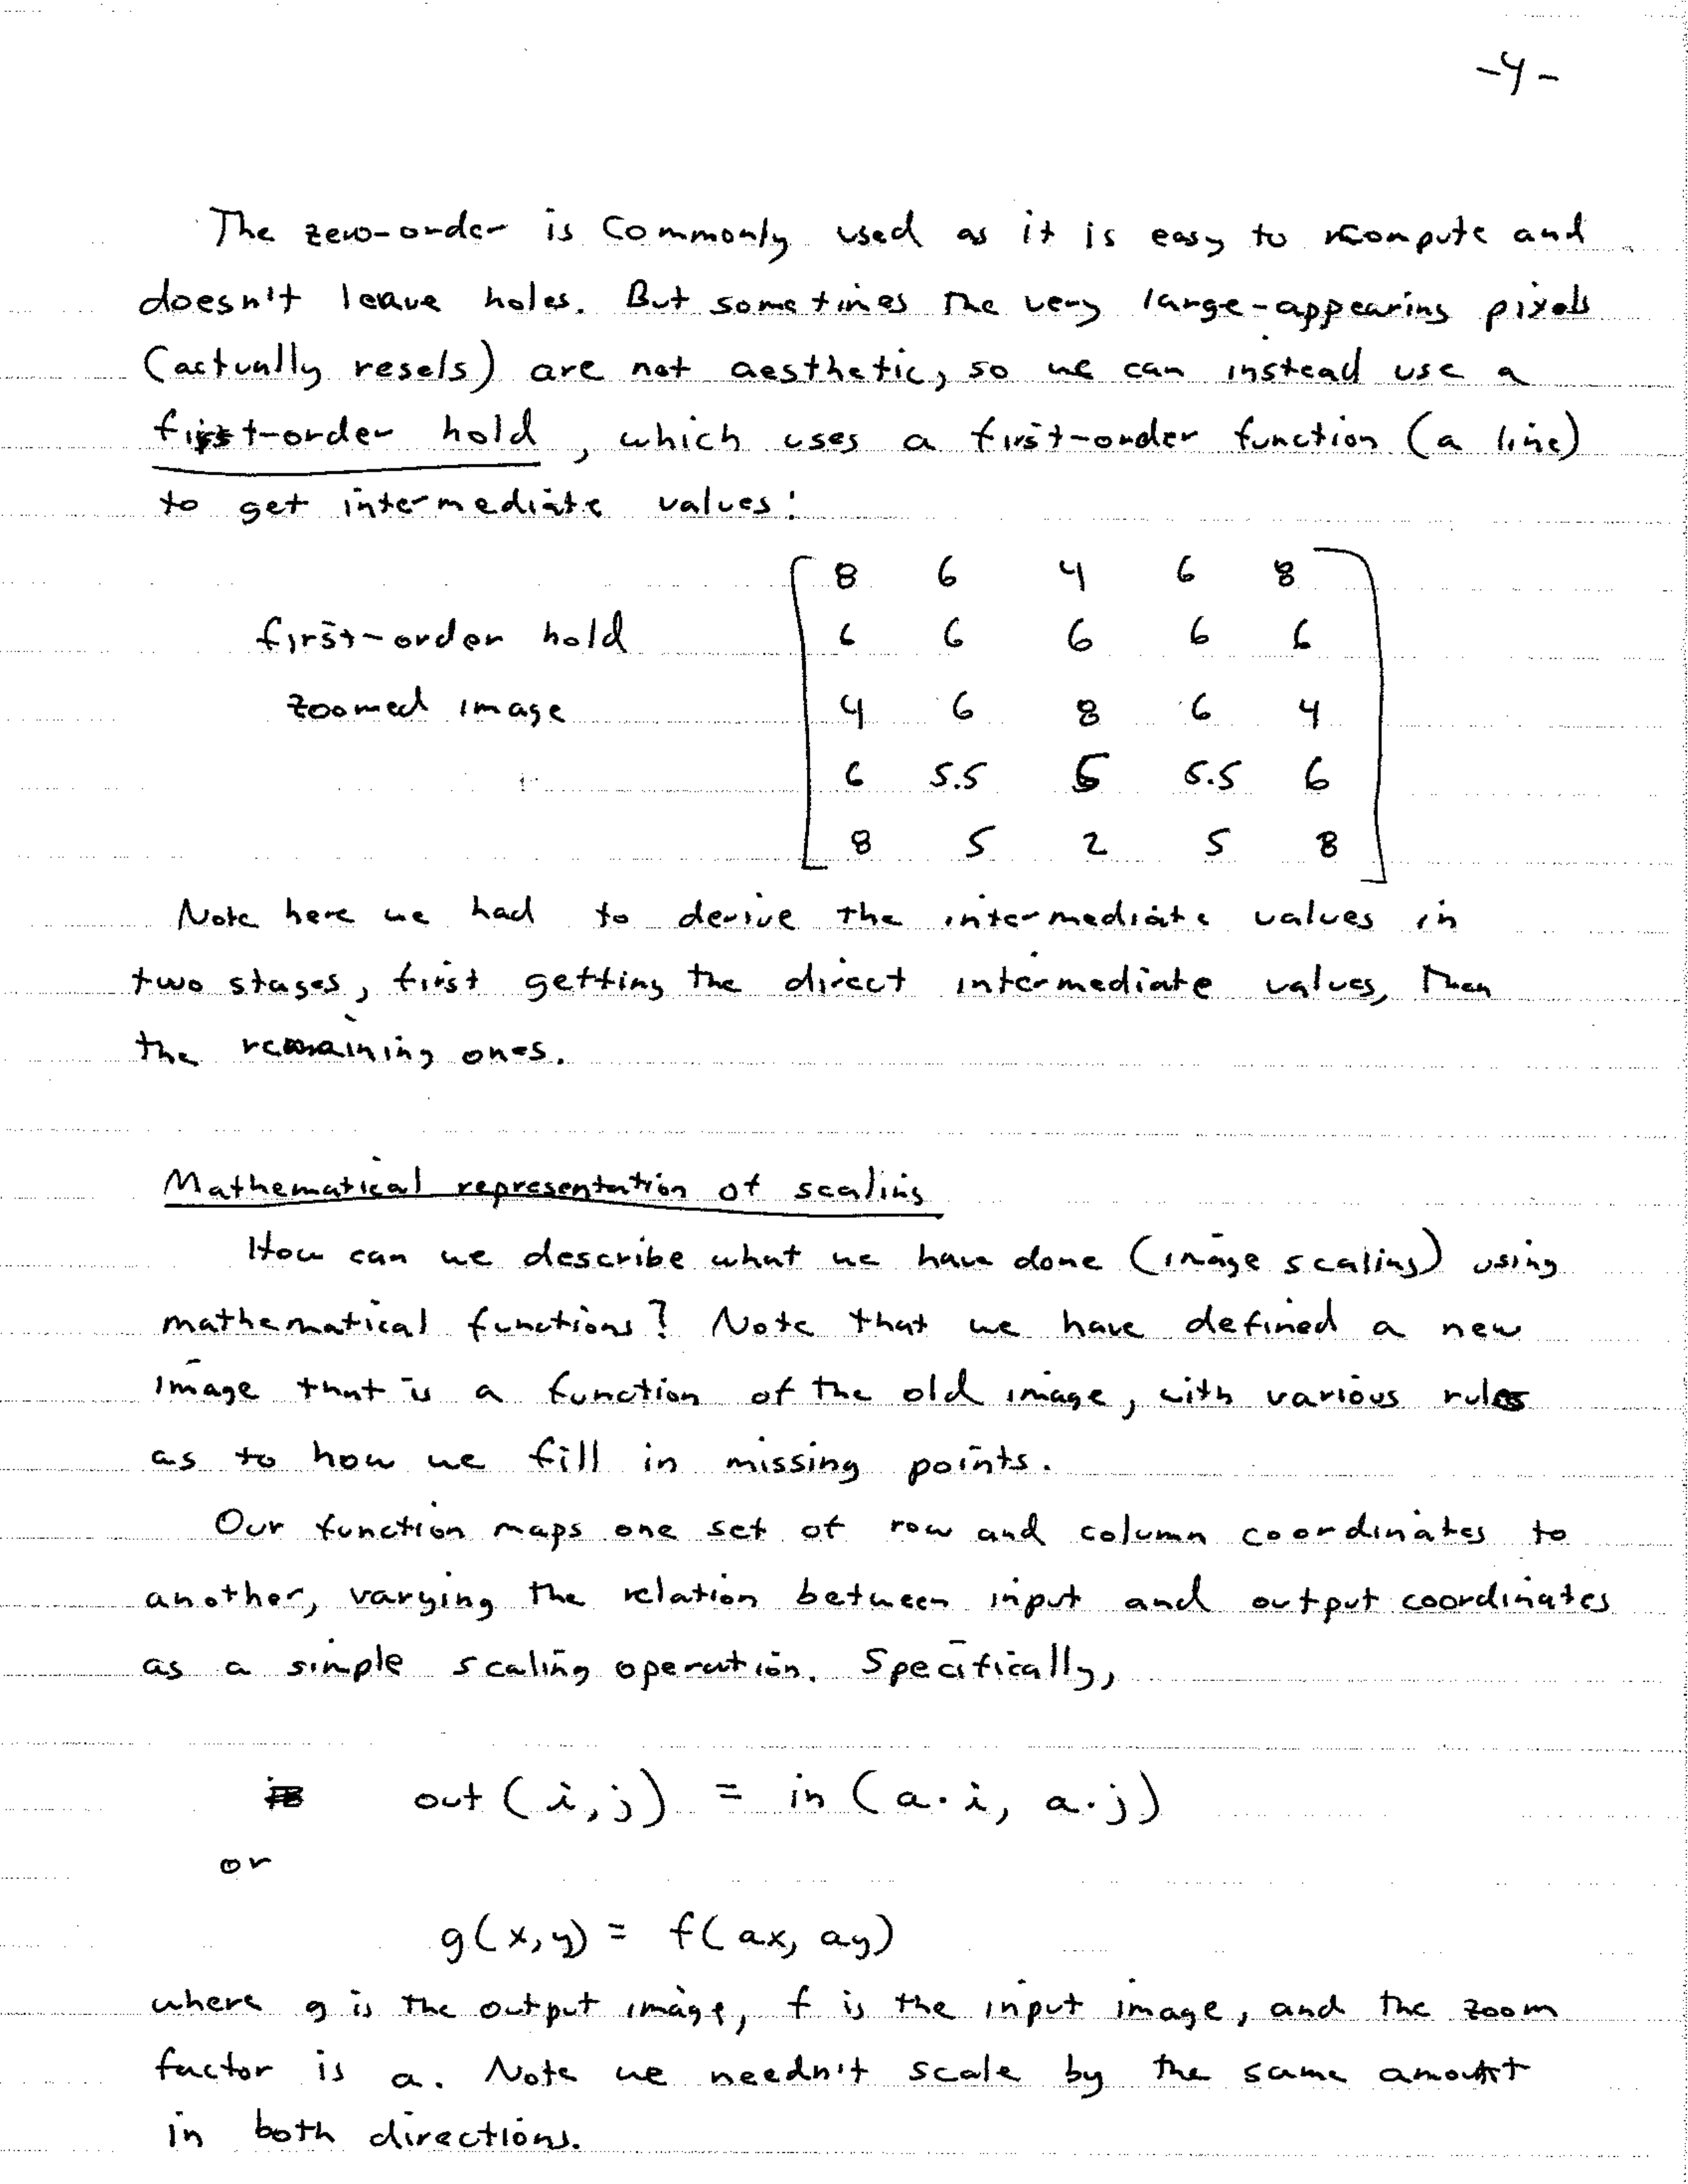 -4-
The zero-order is commonly used as it is easy to compute and
doesn't leave holes. But sometimes the very large-appearing pixels
(actually resels) are not aesthetic, so we can instead use a
first-order hold, which uses a first-order function (a line)
to get intermediate values:
8 6 4 6 8
first-order hold 6 6 6 6 6
zoomed image 4 6 8 6 4
6 5.5 5 5.5 6
8 5 2 5 8
Note here we had to derive the intermediate values in
two stages, first getting the direct intermediate values, then
the remaining ones.
Mathematical representation of scaling
How can we describe what we have done (image scaling) using
mathematical functions? Note that we have defined a new
image that is a function of the old image, with various rules
as to how we fill in missing points.
Our function maps one set of row and column coordinates to
another, varying the relation between input and output coordinates
as a simple scaling operation. Specifically,
out(i,j) = in(a·i, a·j)
or
g(x,y) = f(ax, ay)
where g is the output image, f is the input image, and the zoom
factor is a. Note we needn't scale by the same amount
in both directions.